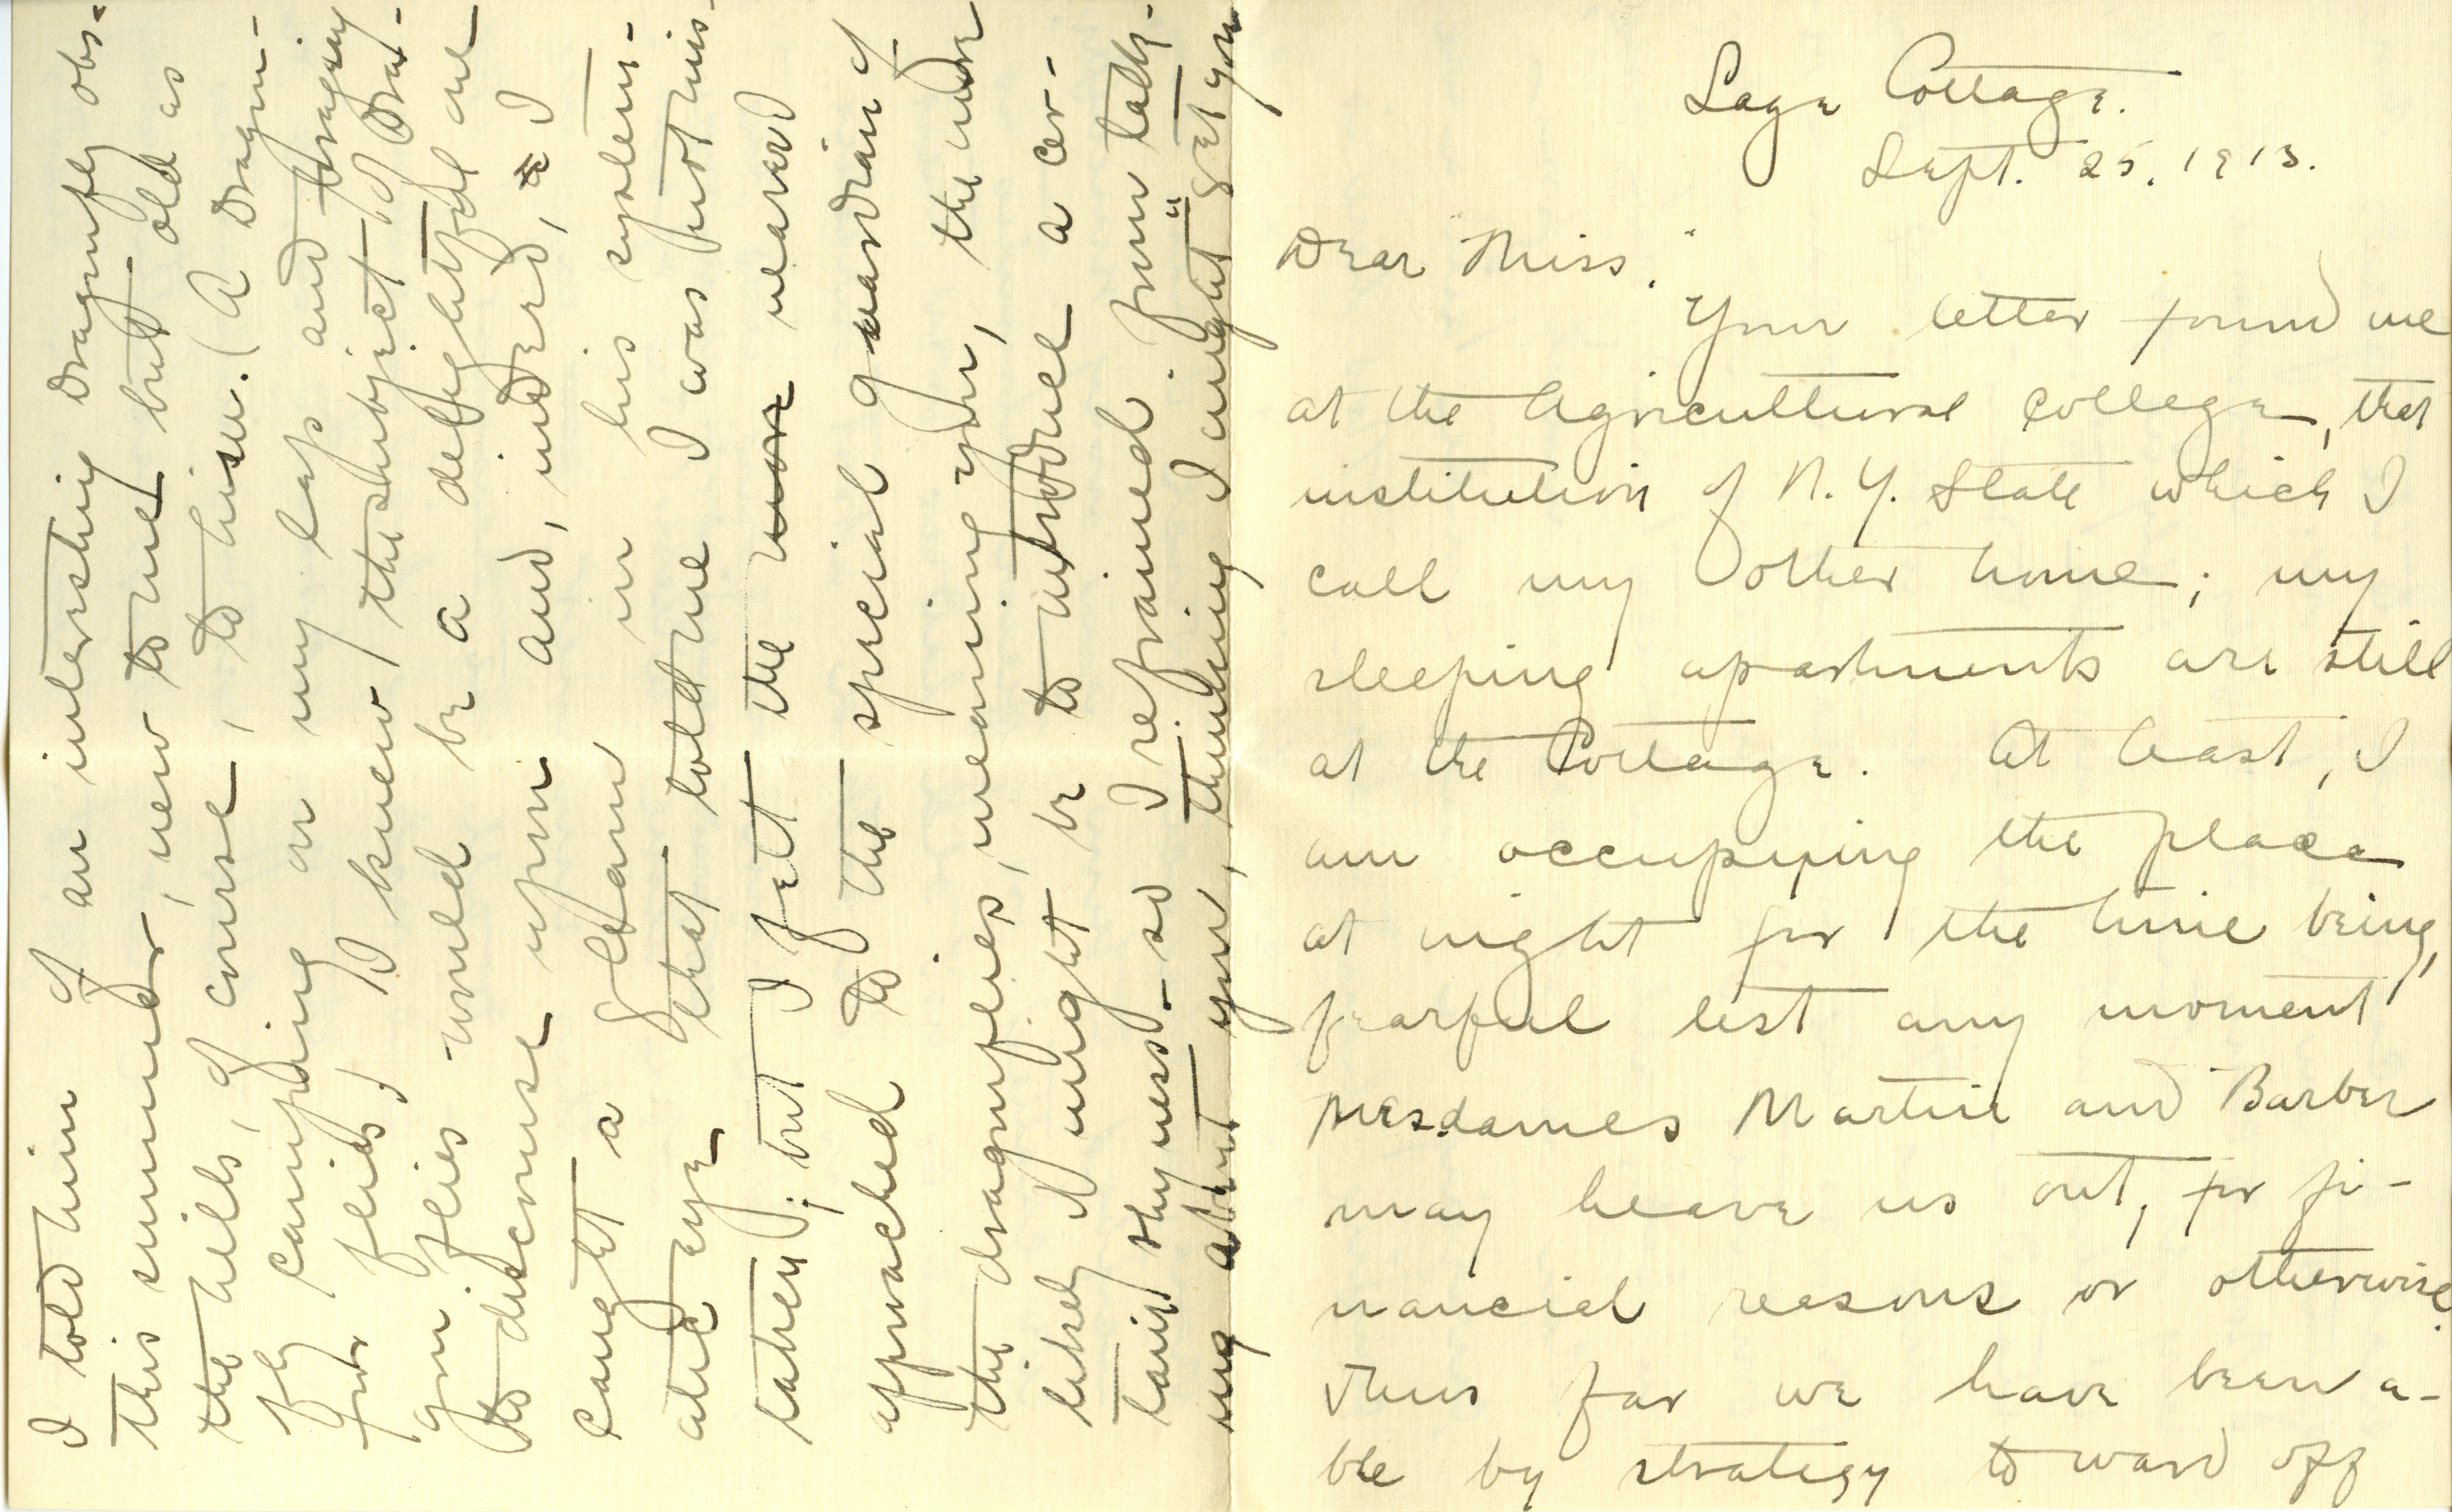 Sage Cottage.
Sept. 25. 1913.
Dear "Miss".
Your letter found me
at the Agricultural College, that
institution of N. Y. State which I
call my other home; my
sleeping apartments are still
at the Cottage. At least, I
am occupying the place
at night for the time being,
fearful lest any moment
Mesdames Martin and Barber
may heave us out, for fi-
nancial reasons or otherwise.
Thus far we have been a-
ble by strategy to ward off
I told him of an interesting dragonfly obs-
this summer, new to me but old as
the hills, of course, to him. (A dragon-
fly camping on my lap and foraging
for flies) I knew the subject of Dra-
gon flies would be a delightful one
to discourse upon and, indeed, I
caught a gleam in his system-
atic eye that told me I was not mis-
taken; but I felt the more nearer
approached to the special guardian of
the dragonflies, meaning you, the more
likely it might be to introduce a cer-
tain shyness - so I refrained from talk-
ing about you, thinking I might "get you